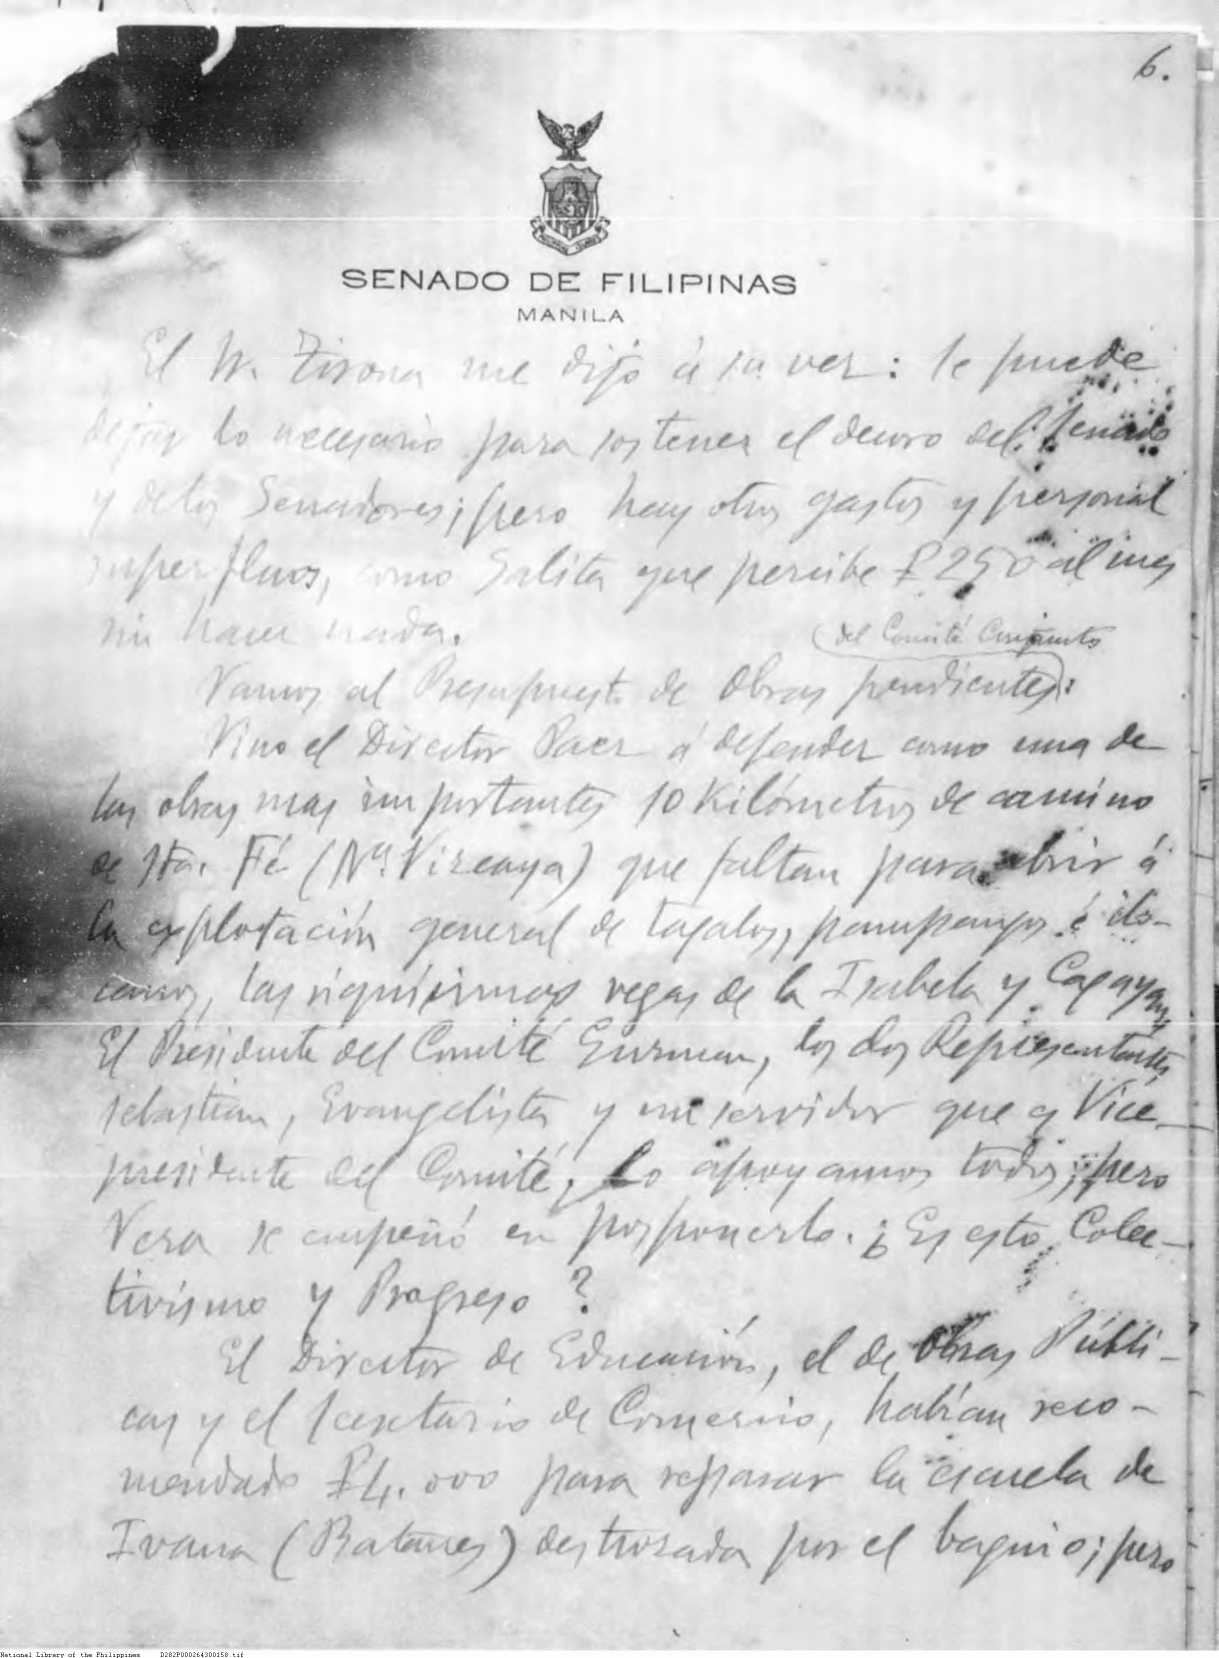 6.
SENADO DE FILIPINAS
MANILA
El Sr. Tirona me dijo á su vez: se puede
dejar lo necesario para sostener el decoro del Senado
y de los Senadores; pero hay otros gastos y personal
superfluos, como Salita que percibe ₱250 al mes
sin hacer nada.
(del Comité Conjunto
Vamos al Presupuesto de Obras pendientes):
Vino el Director Paez á defender como una de
las obras mas importantes 10 Kilómetros de camino
de Sta. Fé (Na. Vizcaya) que faltan para abrir á
la explotación general de tagalos, pampangos é ilo-
canos, las riquísimas vegas de la Isabela y Cagayan,
El Presidente del Comité Guzman, los dos Representantes,
Sebastian, Evangelista y un servidor que es Vice-
presidente del Comité, lo apoyamos todos; pero
Vera se empeñó en posponerlo. ¿Es esto Colec-
tivismo y Progreso?
El Director de Educación, el de Obras Públi-
cas y el Secretario de Comercio, habían reco-
mendado ₱4.000 para reparar la escuela de
Ivana (Batanes) destrozada por el baguio; pero
National Library of the Philippines D282P000264300158.tif